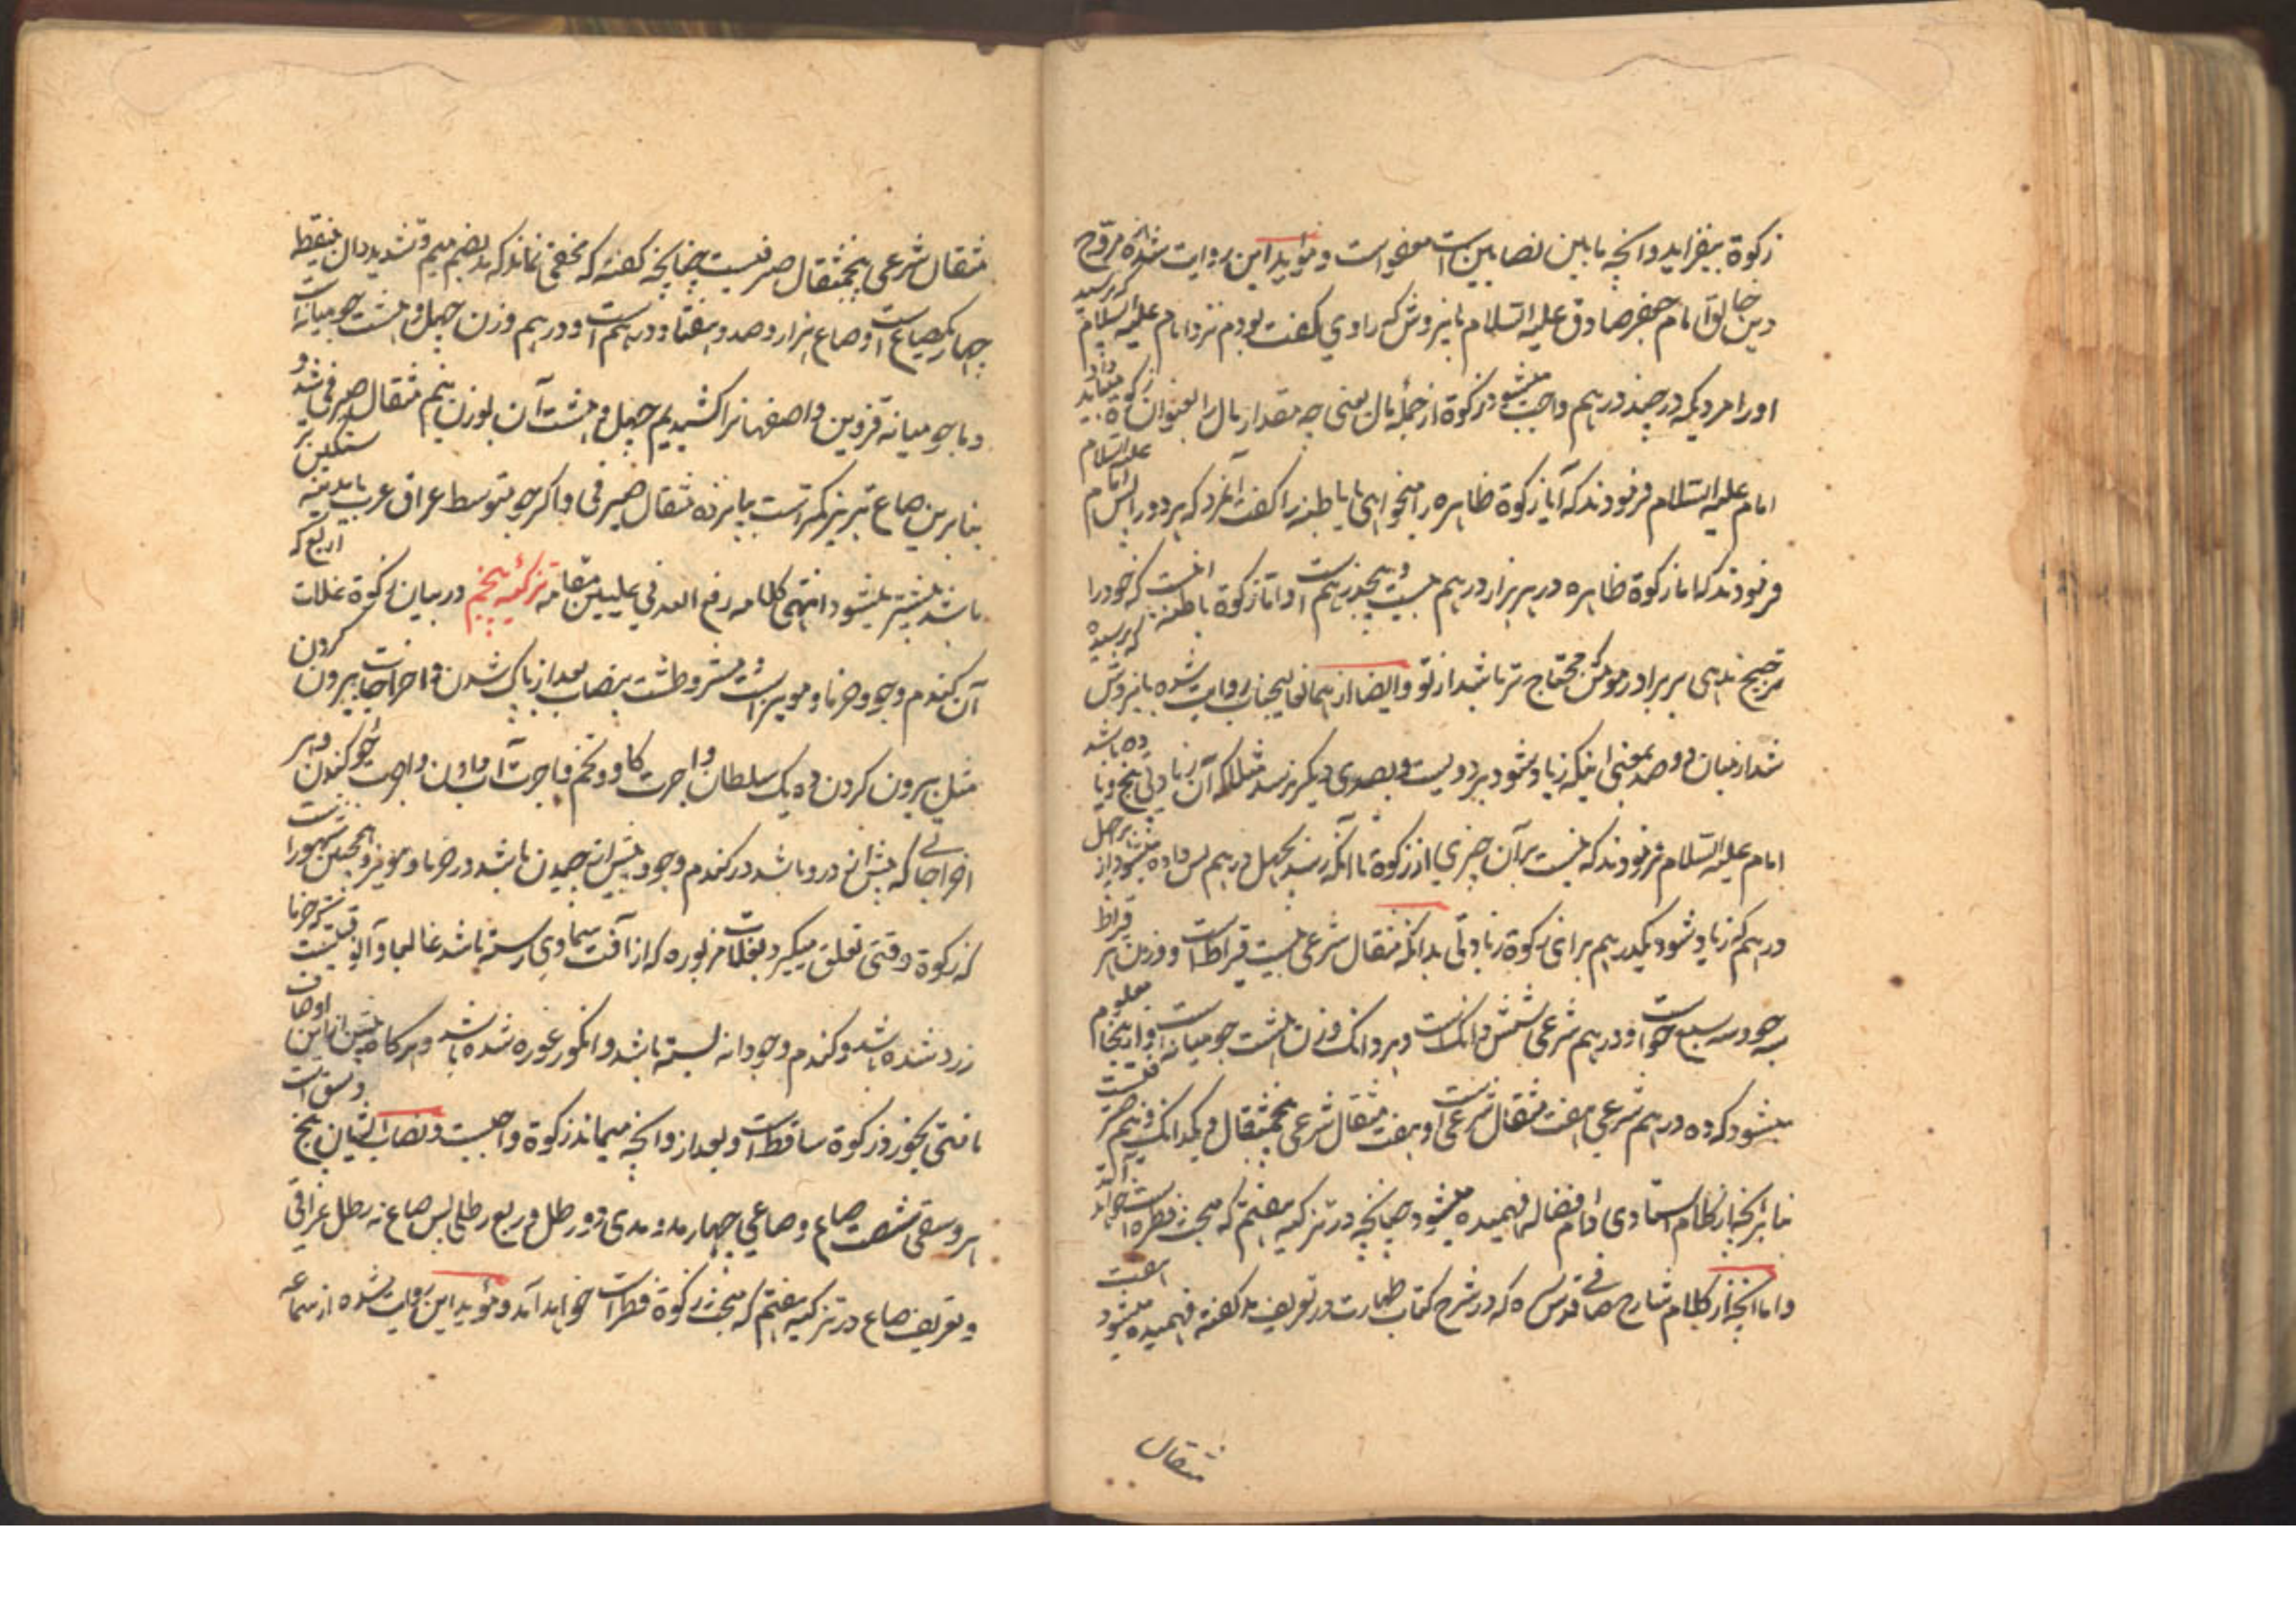 زکوة بیفزاید وانچه مابین نصابین است معفو است و مؤید این روایت شده مروّج
دین خالق امام جعفر صادق علیه السّلام باینروش که راوی گفت بودم نزد امام علیه السلام که پرسید
اورا مردیکه در چند درهم واجب میشود زکوة از جمله مال یعنی چه مقدار مال را بعنوان زکوة
امام علیه السّلام فرمودند که آیا زکوة ظاهره را میخواهی یا باطنه را گفت آنمرد که هر دو را پس امام علیه السلام
فرمودند که اما زکوة ظاهره در هر هزار درهم بیست و پنجدرهم است و اما زکوة باطنه انست که خود را
ترجیح ندهی بر برادر مؤمنی که محتاج تر باشد از تو وایضا از همان روایت شده باینروش که پرسیده
شد از میان دو صد بمعنی اینکه زیاد شود بر دویست و بصدی دیگر نرسد مثلا که آن زیادتی پنج و یا ده باشد
امام علیه السّلام فرمودند که نیست بر آن چیزی از زکوة تا آنکه رسد بچهل درهم پس داده میشود از هر چهل
درهم که زیاد شود یکدرهم برای زکوة زیادتی بدانکه مثقال شرعی بیست قیراط است و وزن هر قیراط
سه جو و سه سبع جو است و درهم شرعی شش دانک است و هر دانک وزن هشت جو میانه است و از اینجا معلوم
میشود که ده درهم شرعی هفت مثقال شرعی است و هفت مثقال شرعی پنجمثقال و یکدانک و نیم صیرفیست
بنا بر آنچه از کلام استادی دام افضاله فهمیده میشود چنانچه در تزکیه هفتم که مبحث فطره است خواهد آمد
واما آنچه از کلام شارح صافی قدس سره که در شرح کتاب طهارت در تعریف مد گفته فهمیده میشود هفت
مثقال
مثقال شرعی پنجمثقال صیرفیست چنانچه گفته که مخفی نماند که مد بضم میم و تشدید دال بینقطه
چهار یک صاع است و صاع هزار و صد و هفتاد درهم است و درهم وزن چهل و هشت جو میانه است
و ما جو میانه قزوین و اصفهانرا کشیدیم چهل و هشت آن بوزن نیم مثقال صیرفی شد و
بنابرین صاع تبریز کمتر است بپانزده مثقال صیرفی و اگر جو متوسط عراق عرب یا مدینه سنگین تر
باشد بیشتر میشود انتهی کلامه رفع الله فی علیین مقامه تزکیه پنجم در بیان زکوة غلات اربع که
آن گندم و جو و خرما و مویز است مشروطست بنصاب بعد از پاک شدن و اخراجات بیرون کردن
مثل بیرون کردن ده یک سلطان و اجرت گاو و تخم و اجرت آب دادن و اجرت جوی کندن و هر
اخراجاتی که پیش از درو باشد در گندم و جو و پیش از چیدن باشد در خرما و مویز و همچنین مشهور است
که زکوة وقتی تعلق میگیرد بغلات مزبوره که از آفت سماوی رسته باشد غالبا و آنوقتیست که خرما
زرد شده باشد و گندم و جو دانه بسته باشد و انگور غوره شده باشد و هرگاه پیش از این اوصاف
آفتی بخورد زکوة ساقط است و بعد از و آنچه میماند زکوة واجبست و نصاب ایشان پنج وسق است
هر وسقی شصت صاع و صاعی چهار مد و مدی دو رطل و ربع رطلی پس صاع نه رطل عراقی
و تعریف صاع در تزکیه هفتم که مبحث زکوة فطر است خواهد آمد و مؤید این روایت شده از سماعه